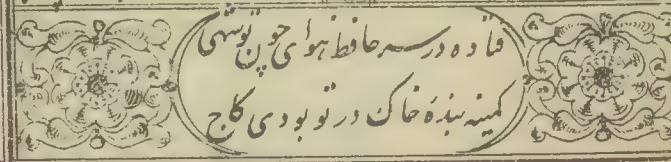 فتاده در سر حافظ هوای چون تو شهی
کمینه بنده خاک در تو بودی کاج